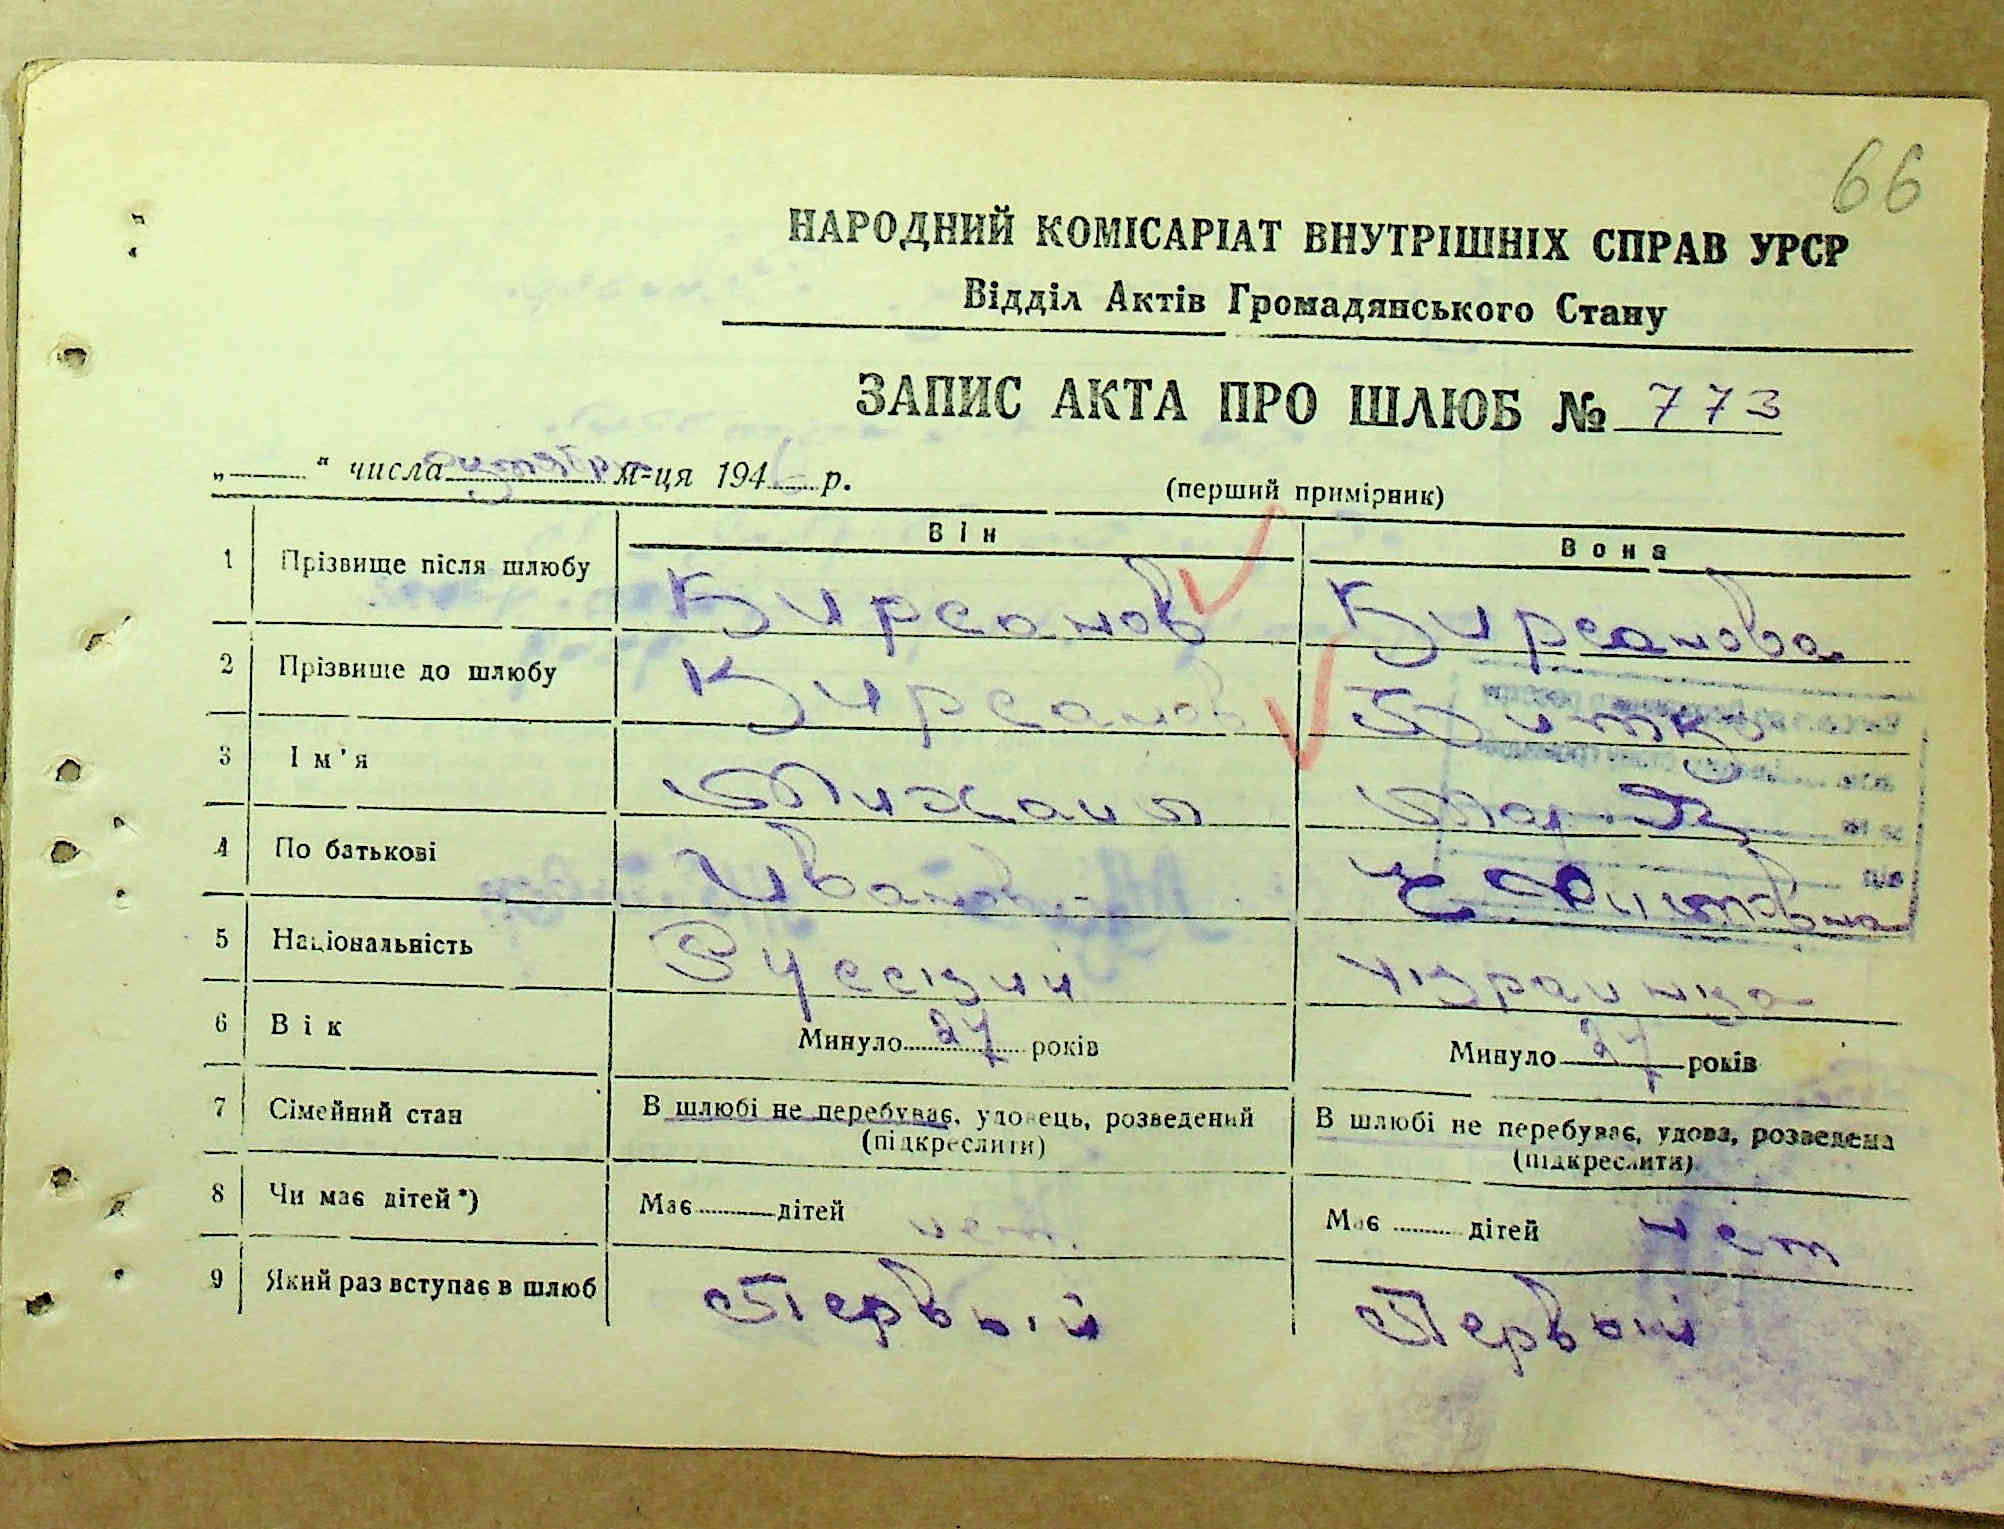 66
НАРОДНИЙ КОМІСАРІАТ ВНУТРІШНІХ СПРАВ УРСР
Відділ Актів Громадянського Стану
ЗАПИС АКТА ПРО ШЛЮБ № 773
„ “ числа м-ця 194 р.
(перший примірник)
Він Вона
1 Прізвище після шлюбу Кирсанов Кирсанова
2 Прізвище до шлюбу Кирсанов
3 Ім'я Михаил
4 По батькові Иванович
5 Національність Русский Украинка
6 Вік Минуло 27 років Минуло 27 років
7 Сімейний стан В шлюбі не перебуває, удовець, розведений В шлюбі не перебуває, удова, розведена
(підкреслити) (підкреслити)
8 Чи має дітей*) Має дітей нет. Має дітей нет
9 Який раз вступає в шлюб Первый Первый